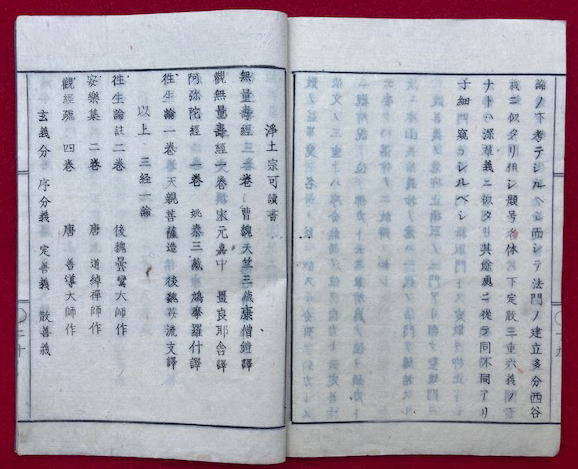 論ノ不考テシルヘシ而シテ法門ノ建立多分西谷
義ニ似タリ但シ題号名体下定散三重六義ノ
ナトハ深草義ニ似タリ其餘處ニ從テ同不同アリ
子細可窺シルベシ
淨土宗可讀書
無量壽經三卷 曹魏天竺三藏康僧鎧譯
觀無量壽經一卷 宋元嘉中 畺良耶舍譯
阿弥陀經一卷 姚秦三藏 鳩摩羅什譯
徃生論一卷 天親菩薩造 後魏菩流支譯
以上 三経一論
徃生論註二卷 後魏曇鸞大師作
安樂集 二卷 唐 道綽禪師作
觀經疏 四卷 唐 善導大師作
玄義分 序分義 定善義 散善義